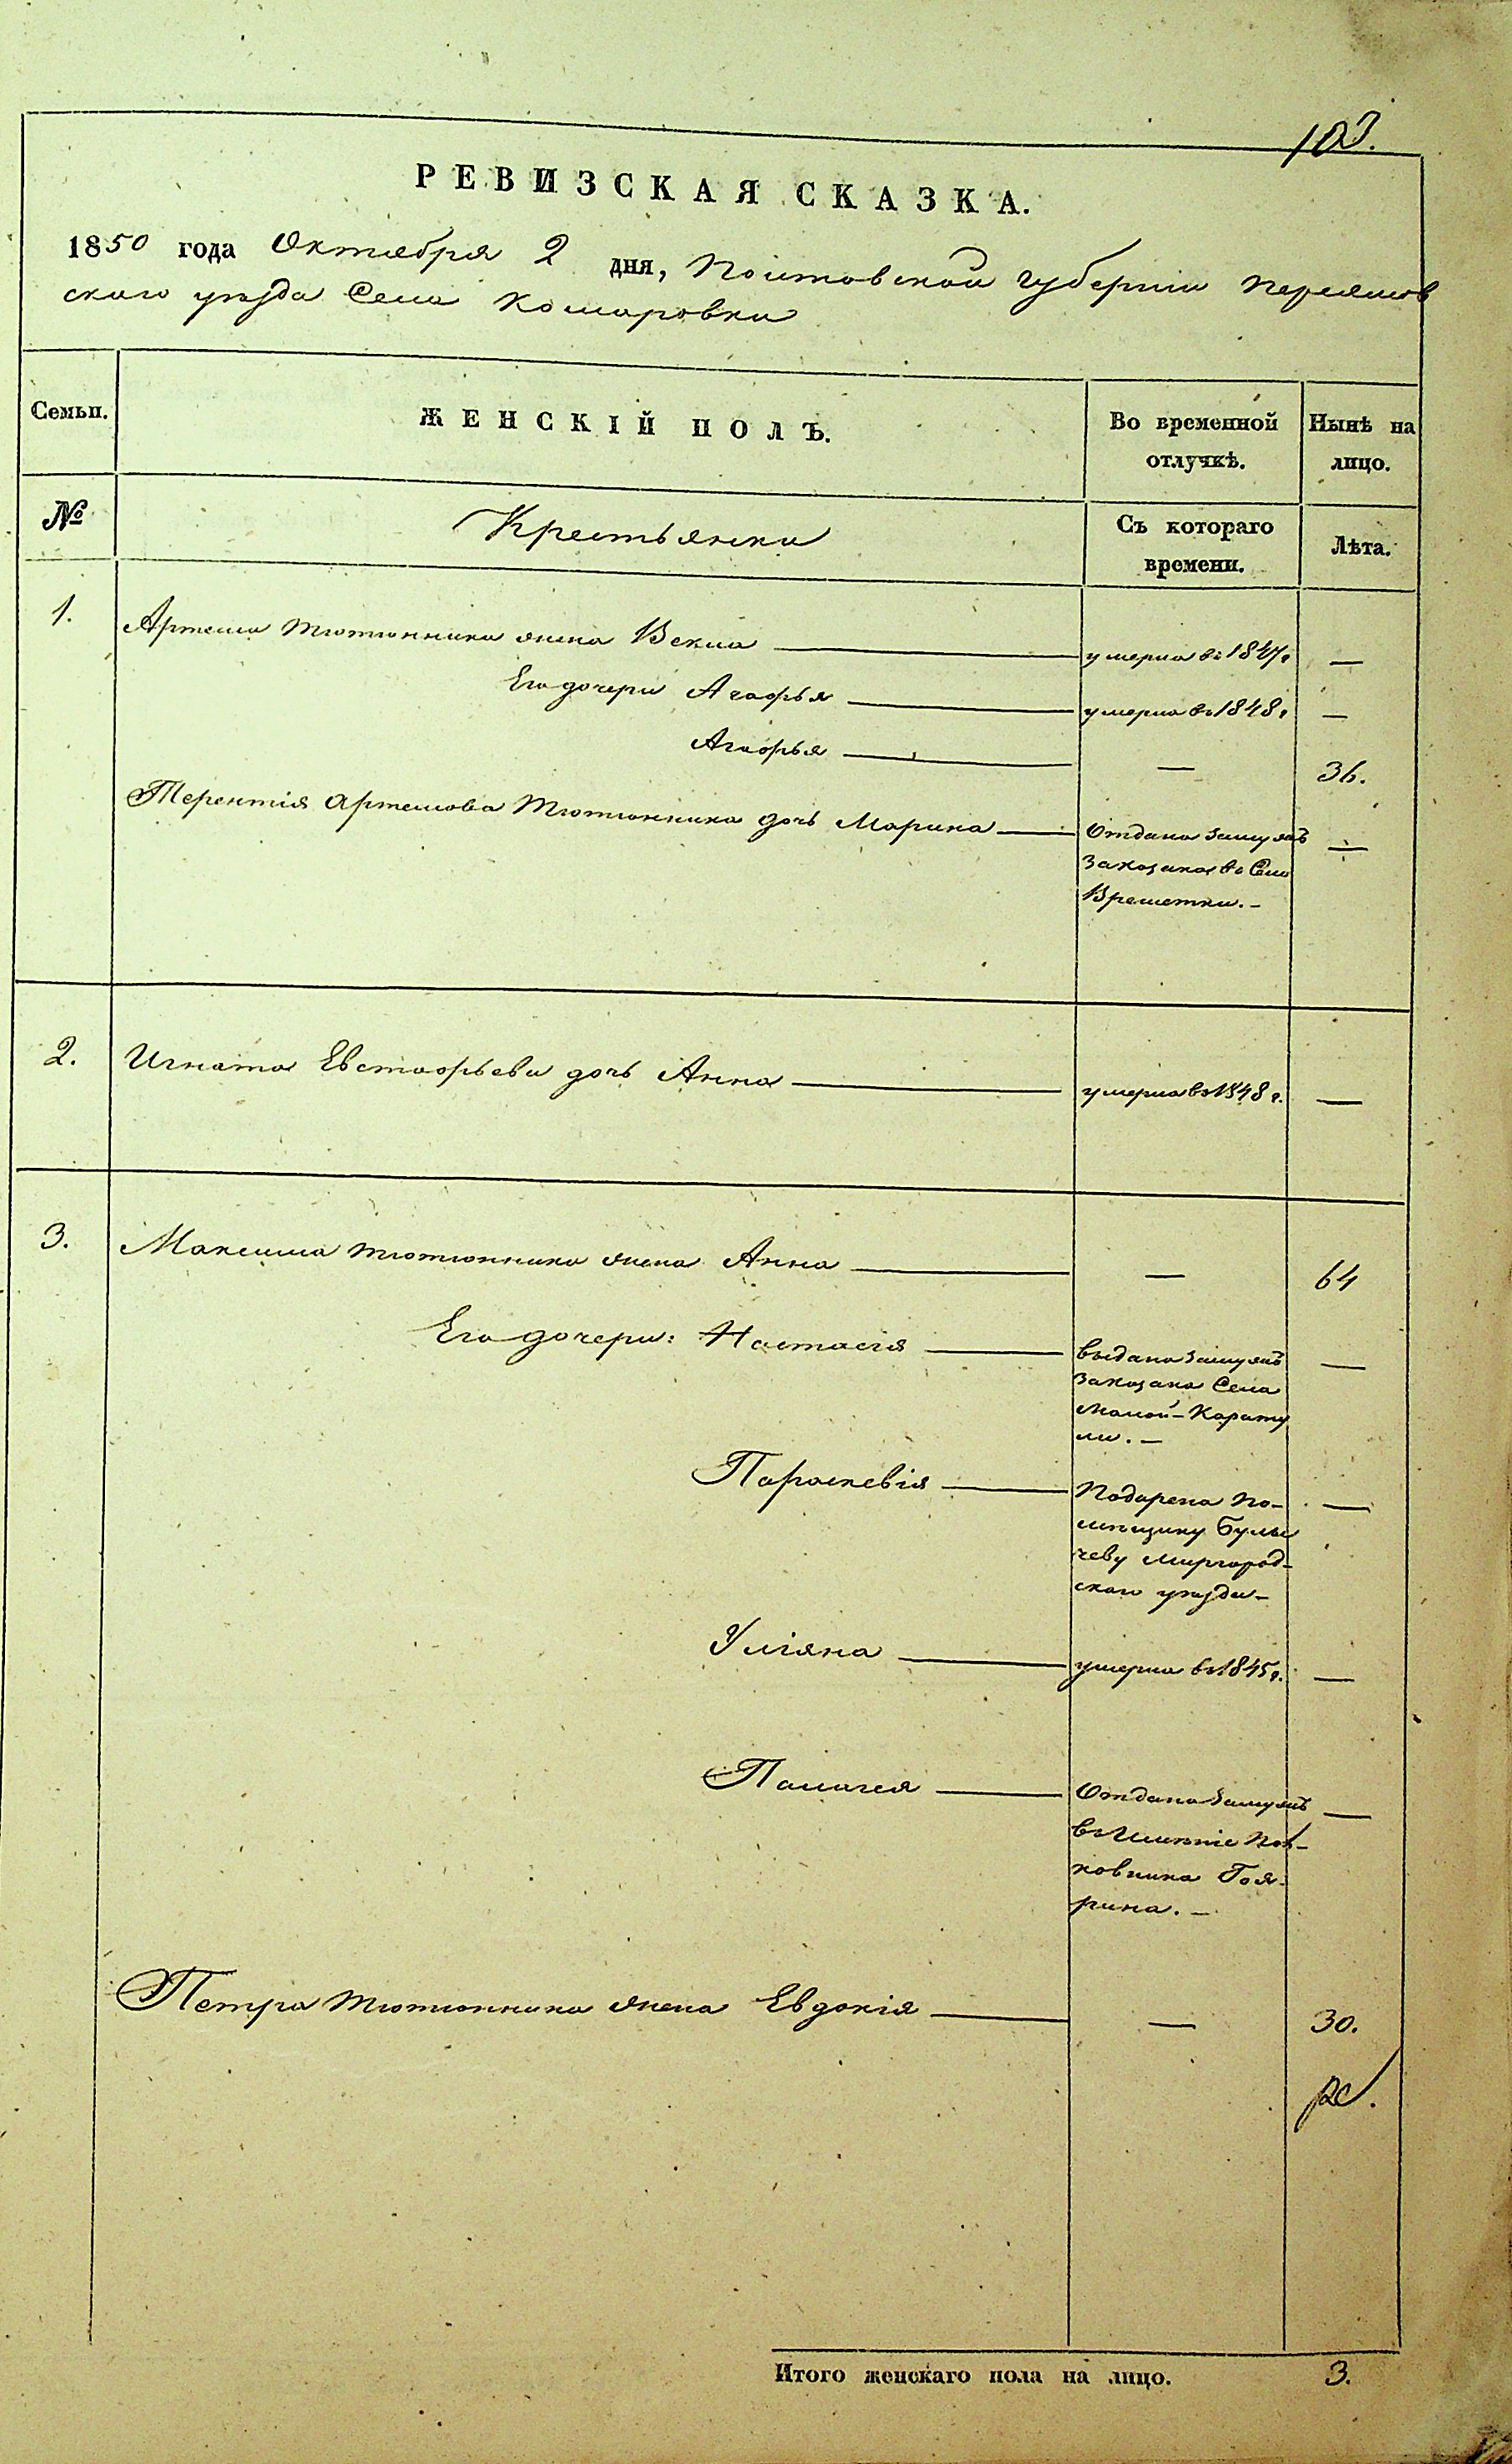 103.
РЕВИЗСКАЯ СКАЗКА.
1850 года Октября 2 дня, Полтовской губерніи Переяслов
скаго уѣзда Села Комаровки
Семьи. ЖЕНСКІЙ ПОЛЪ. Во временной отлучкѣ. Нынѣ на лицо.
№ Крестьянки Съ котораго времени. Лѣта.
1. Артема Тютюнника жена Векла — умерла въ 1847г —
Его дочери Агафья — умерла въ 1848г —
Агафья — — 36.
Терентія Артемова Тютюнника дочь Марина — Отдана замужъ —
за козака въ Село
Врешетки. –
2. Игната Евстафьева дочь Анна — умерла въ 1848 г. —
3. Максима Тютюнника жена Анна — — 64
Его дочери: Настасія — выдана замужъ —
за козака Села
малой-Карату
ли. –
Параскевія — Подарена по- —
мѣщику Булы
чеву миргород-
скаго уѣзда –
Уліяна — умерла въ 1845г. —
Палагея — Отдана замужъ —
въ Имѣніе Пол-
ковника Гоя-
рина. –
Петра Тютюнника жена Евдокія — — 30.
Итого женскаго пола на лицо. 3.